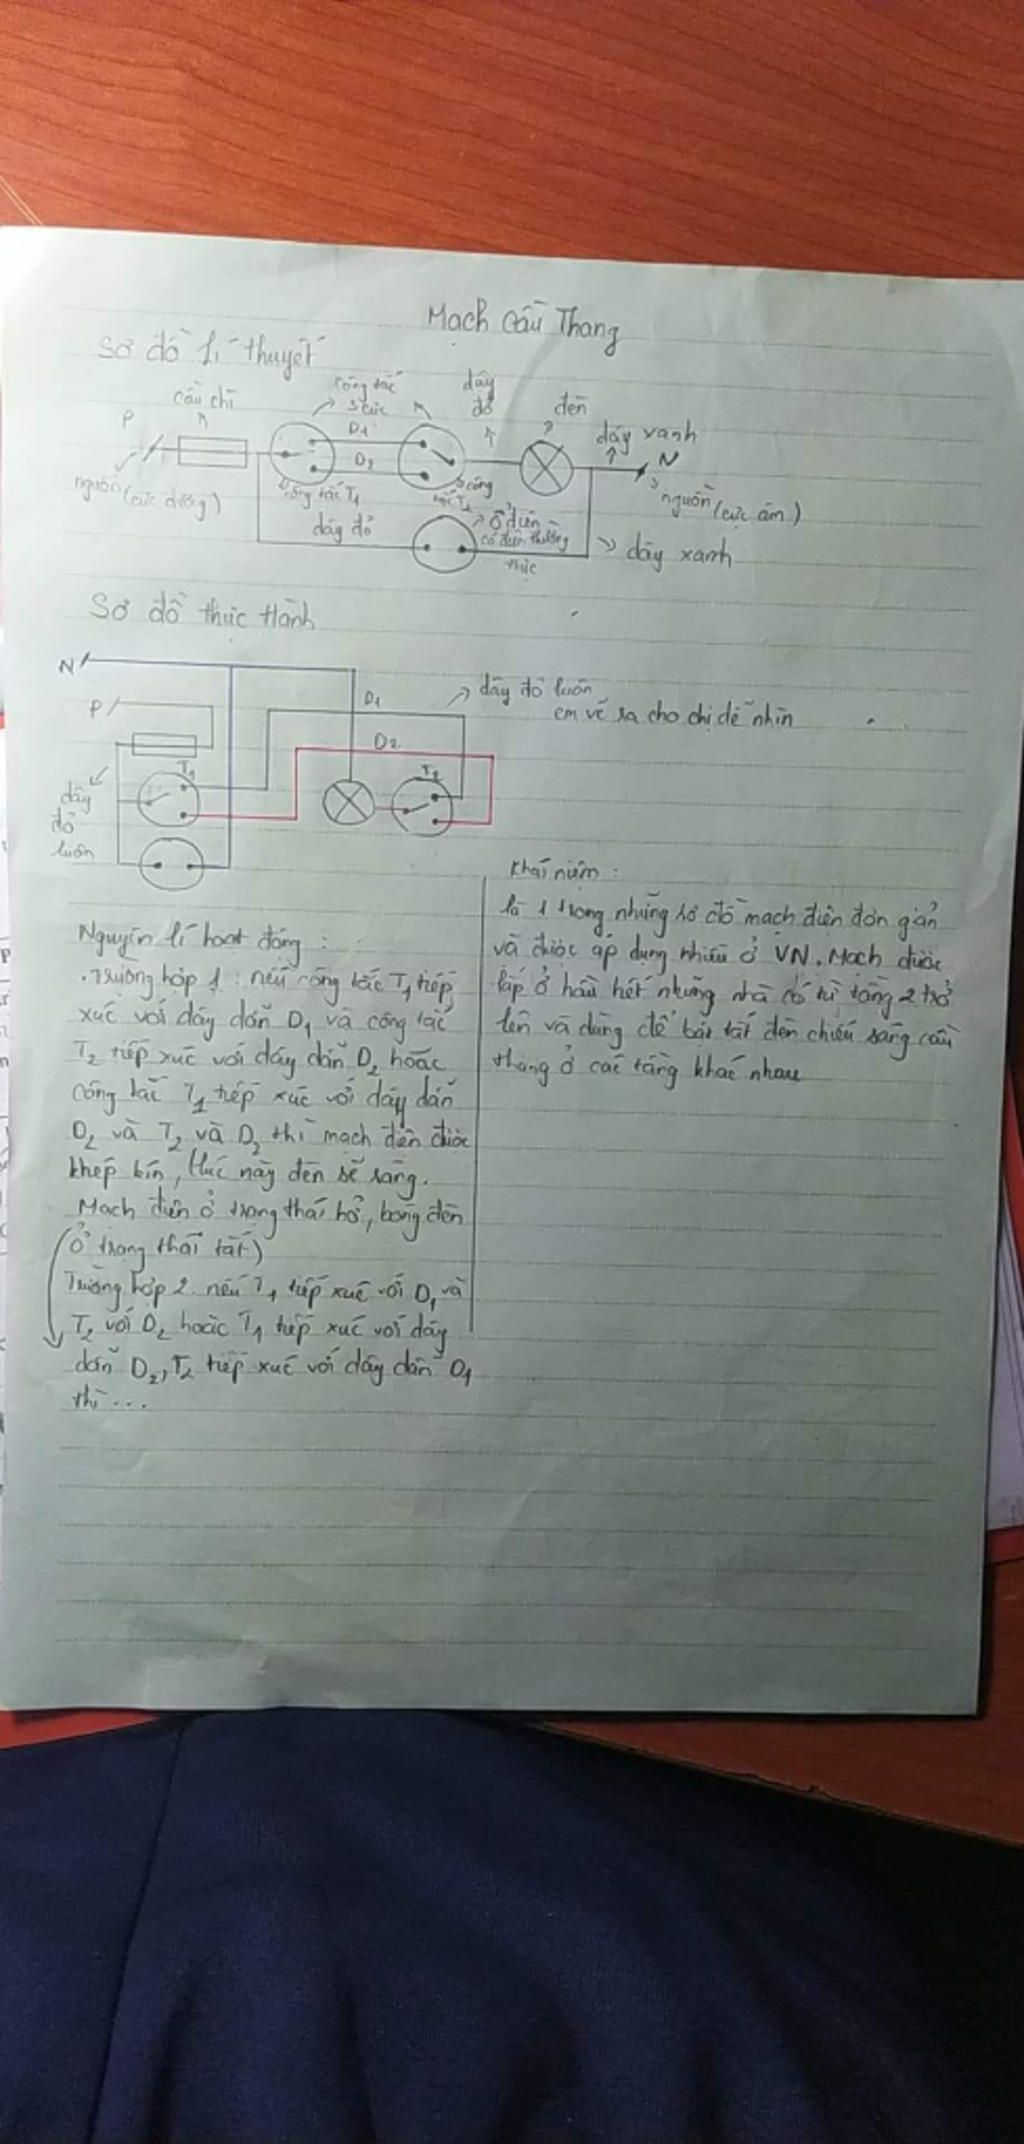 Mạch Cầu Thang
Sơ đồ lí thuyết
cầu chì
công tắc
3 cực
dây
đỏ
đèn
dây xanh
P
D1
D2
N
nguồn (cực dương)
công tắc T1
công
tắc T2
ổ điện
có điện thường
trực
nguồn (cực âm)
dây đỏ
dây xanh
Sơ đồ thực Hành
N
P
D1
dây đỏ luôn
em vẽ ra cho chị dễ nhìn
D2
T1
T2
dây
đỏ
luôn
Nguyên lí hoạt động :
. Trường hợp 1 : nếu công tắc T1 tiếp
xúc với dây dẫn D1 và công tắc
T2 tiếp xúc với dây dẫn D2 hoặc
công tắc T1 tiếp xúc với dây dẫn
D2 và T2 và D2 thì mạch điện được
khép kín, lúc này đèn sẽ sáng.
Mạch điện ở trạng thái hở, bóng đèn
ở trạng thái tắt)
Trường hợp 2. nếu T1 tiếp xúc với D1 và
T2 với D2 hoặc T1 tiếp xúc với dây
dẫn D2, T2 tiếp xúc với dây dẫn D1
thì ...
Khái niệm :
là 1 trong những sơ đồ mạch điện đơn giản
và được áp dụng nhiều ở VN. Mạch được
lắp ở hầu hết những nhà có từ tầng 2 trở
lên và dùng để bật tắt đèn chiếu sáng cầu
thang ở các tầng khác nhau